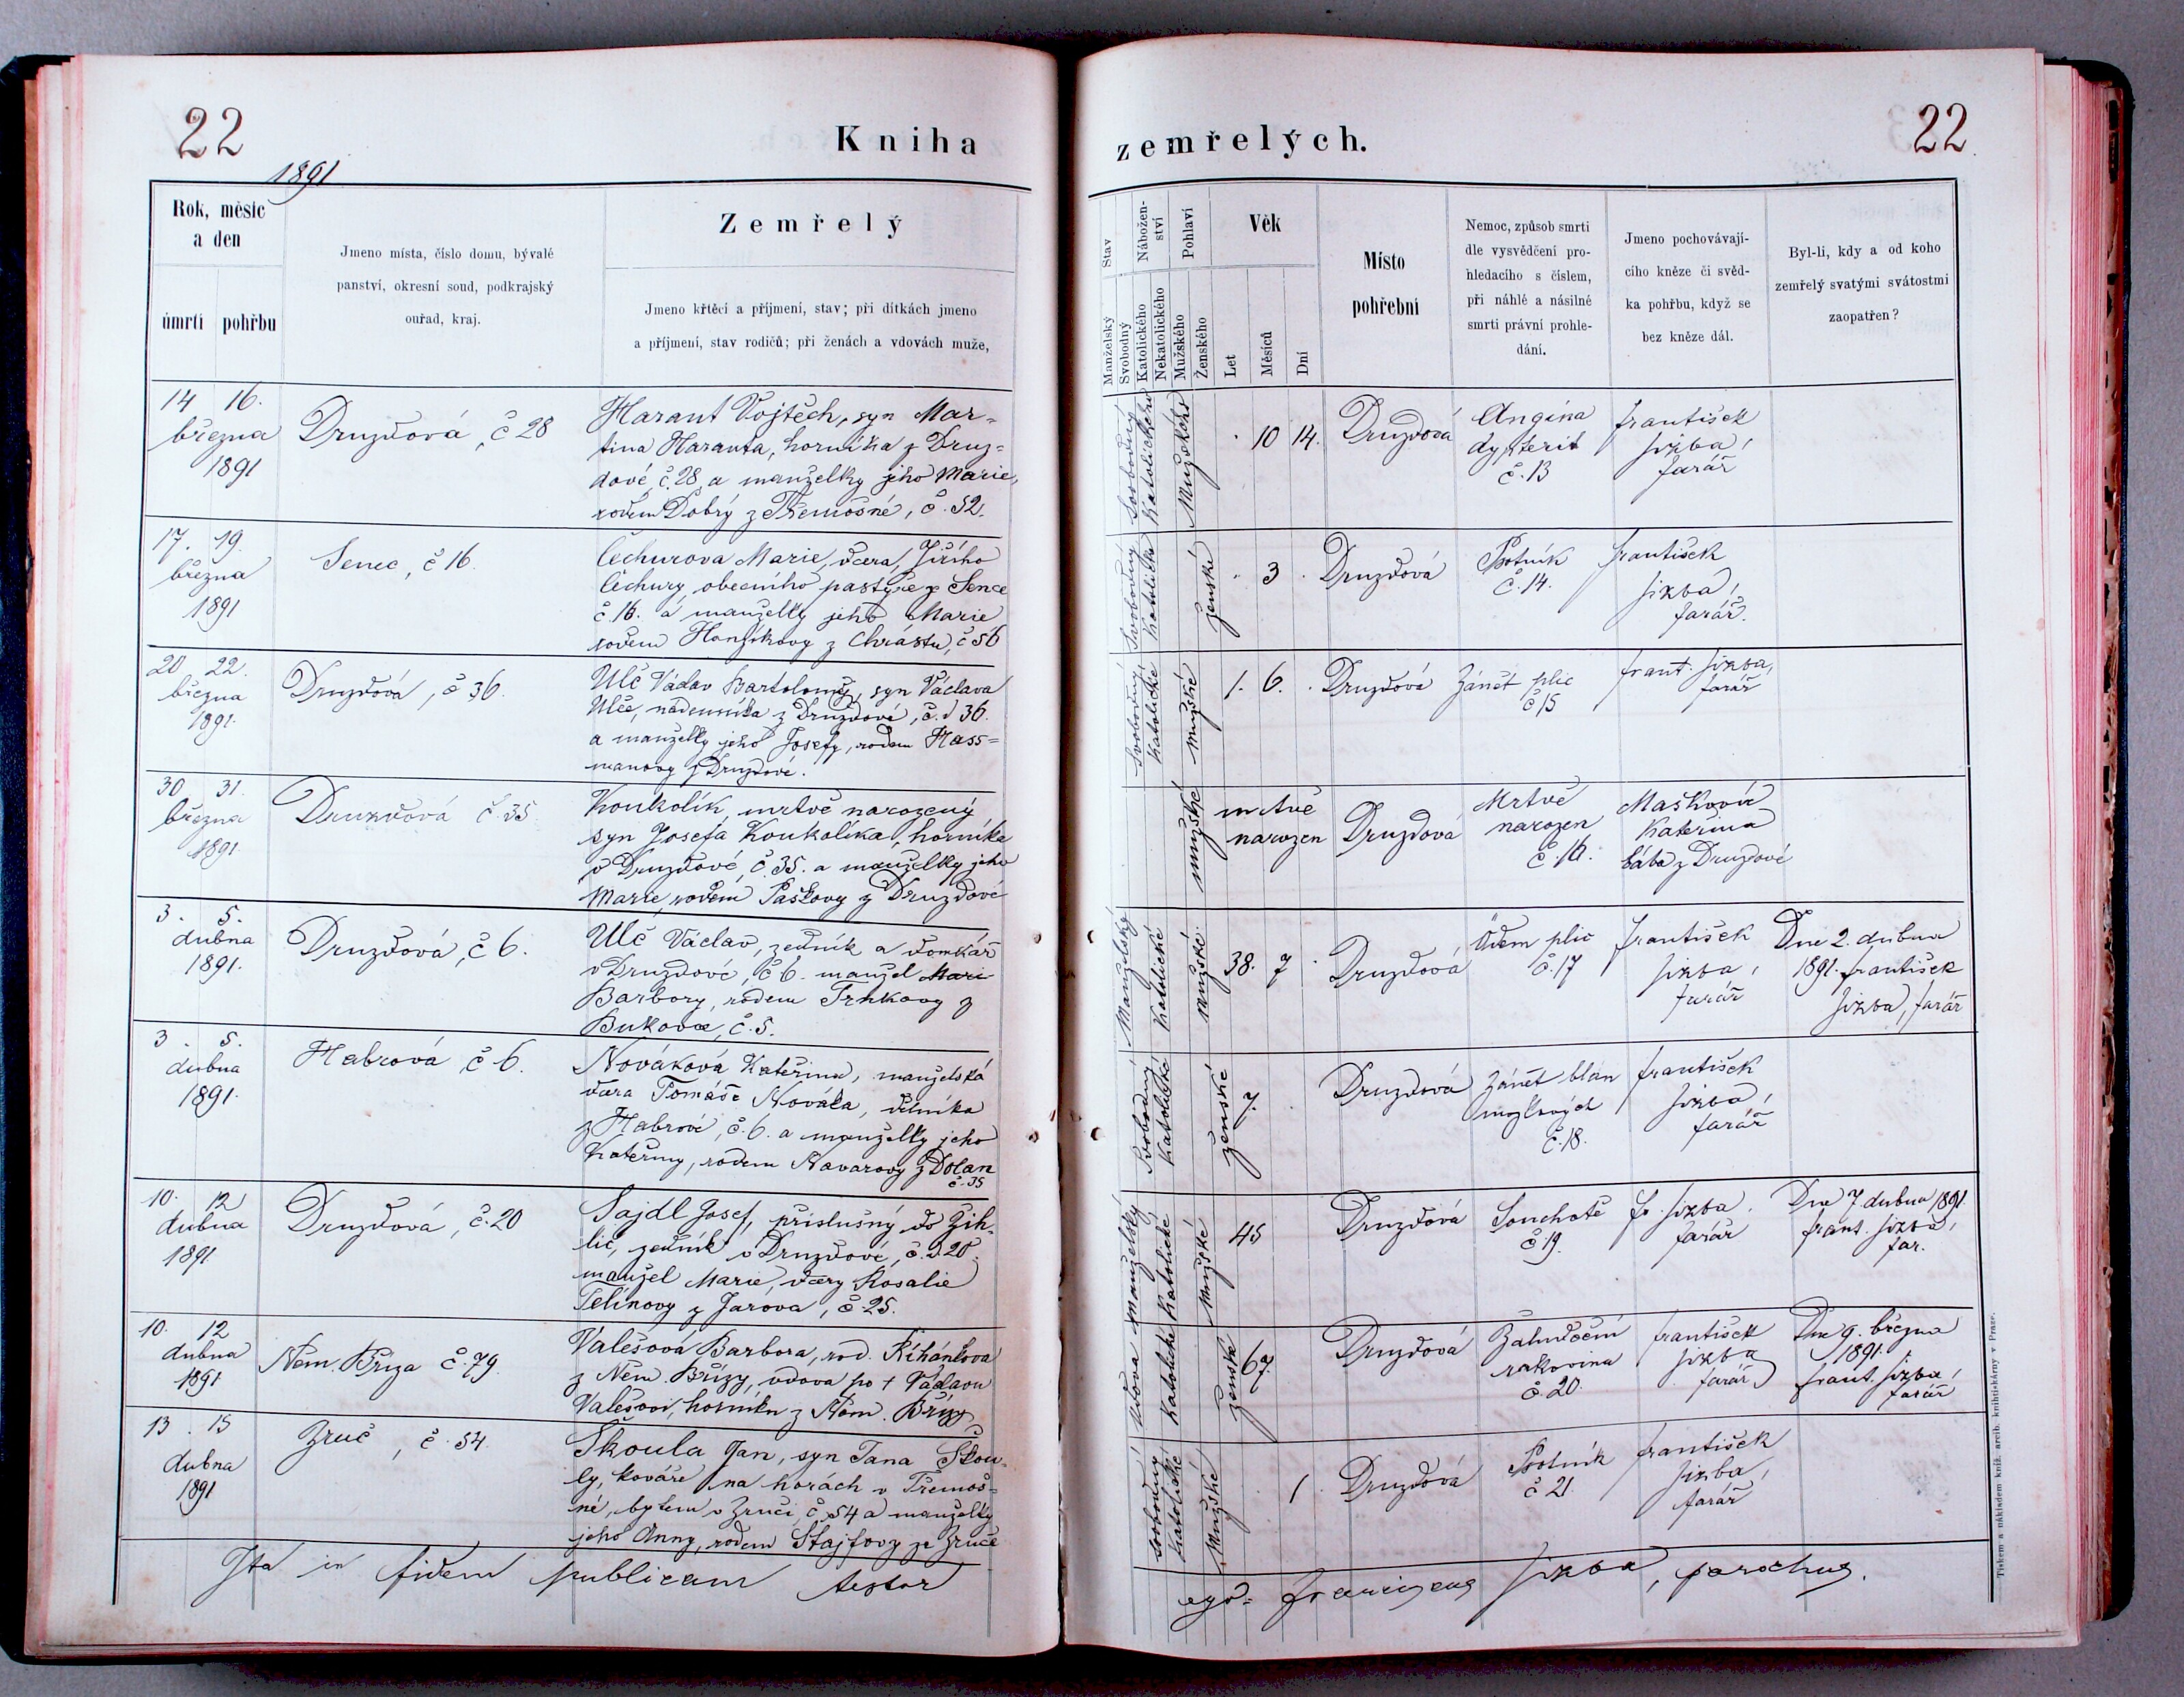 22
Kniha
1891
Rok, měsíc
a den
úmrtí pohřbu
Jmeno místa, číslo domu, bývalé
panství, okresní soud, podkrajský
ouřad, kraj.
Zemřelý
Jmeno křtěcí a příjmení, stav; při dítkách jmeno
a příjmení, stav rodičů; při ženách a vdovách muže,
14 16.
března
1891
Druzďová, č 28
Harant Vojtěch, syn Mar-
tina Haranta, horníka z Druz-
dové, č. 28, a manželky jeho Marie,
rodem Dobrý z Třemošné, č. 52.
17. 19.
března
1891
Senec, č 16.
Čechurova Marie, dcera Jiřího
Čechury, obecního pastýře ze Sence
č 16. a manželky jeho Marie
rodem Hanzíkovy z Chrástu, č 56
20 22.
března
1891.
Druzďová, č 36.
Ulč Václav Bartoloměj, syn Václava
Ulče, nádenníka z Druzdové, č. d 36.
a manželky jeho Josefy, rodem Hass=
manovy z Druzdové.
30 31.
března
1891.
Druzďová č. 35.
Koukolík, mrtvě narozený
syn Josefa Koukolíka, horníka
v Druzďové, č. 35. a manželky jeho
Marie, rodem Paškovy z Druzdové
3. 5.
dubna
1891.
Druzďová, č 6.
Ulč Václav, zedník a domkář
v Druzdové, č 6. manžel
Barbory, rodem Trnkovy z
Bukové, č. 5.
3. 5.
dubna
1891.
Habrová č 6.
Nováková Kateřina, manželská
dcera Tomáše Nováka, dělníka
z Habrové, č. 6. a manželky jeho
Kateřiny, rodem Navarovy z Dolan
č. 35
10. 12
dubna
1891
Druzďová, č. 20
Sajdl Josef, příslušný do Žih-
lic, zedník v Druzďové, č. d. 20.
manžel Marie, dcery Rosalie
Telínovy z Jarova, č. 25.
10. 12
dubna
1891
Něm. Bříza č. 79.
Valešová Barbora, rod. Říhánkova
z Něm. Břízy, vdova po † Václavu
Valešovi, horníku z Něm. Břízy
13. 15
dubna
1891
Zruč, č. 54.
Škoula Jan, syn Jana Škou-
ly, kováře na horách v Třemoš-
né, bytem v Zruči, č. 54 a manželky
jeho Anny, rodem Štajfovy ze Zruče
Ita in fidem publicam testor
zemřelých.
22
Stav
Manželský
Svobodný
Nábožen-
ství
Katolického
Nekatolického
Pohlaví
Mužského
Ženského
Věk
Let
Měsíců
Dní
Místo
pohřební
Nemoc, způsob smrti
dle vysvědčení pro-
hledacího s číslem,
při náhlé a násilné
smrti právní prohle-
dání.
Jmeno pochovávají-
cího kněze či svěd-
ka pohřbu, když se
bez kněze dál.
Byl-li, kdy a od koho
zemřelý svatými svátostmi
zaopatřen?
Svobodný
Katolického
Mužského
10 14.
Druzďová
Angina
dyfterit
č. 13
František
Sizba,
farář
Svobodný
Katolické
ženské
3
Druzďová
Psotník
č. 14.
František
Sizba,
farář.
Svobodný
Katolické
Mužské
1. 6.
Druzďová
Zánět plic
č 15
Frant. Sizba,
farář
mužské
mrtvě
narozen
Druzďová
Mrtvě
narozen
č. 16.
Mašková
Kateřina
bába z Druzdové
Manželský
Katolické
mužské
38. 7
Druzďová
Œdem plic
č. 17
František
Sizba,
farář
Dne 2. dubna
1891. František
Sizba, farář
Svobodný
Katolické
ženské
7.
Druzďová
Zánět blan
mozkových
č. 18.
František
Sizba,
farář
Manželský
Katolické
Mužské
45
Druzďová
Souchotě
č 19.
Fr. Sizba.
farář
Dne 7. dubna 1891
Frant. Sizba,
far.
Vdova
Katolické
ženské
67.
Druzďová
Žaludeční
rakovina
č. 20.
František
Sizba
farář
Dne 9. března
1891.
Frant. Sizba,
farář
Svobodný
Katolické
Mužské
1
Druzďová
Psotník
č 21.
František
Sizba,
farář
ego- Franciscus Sizba, parochus.
Tiskem a nákladem kníž. arcib. knihtiskárny v Praze.